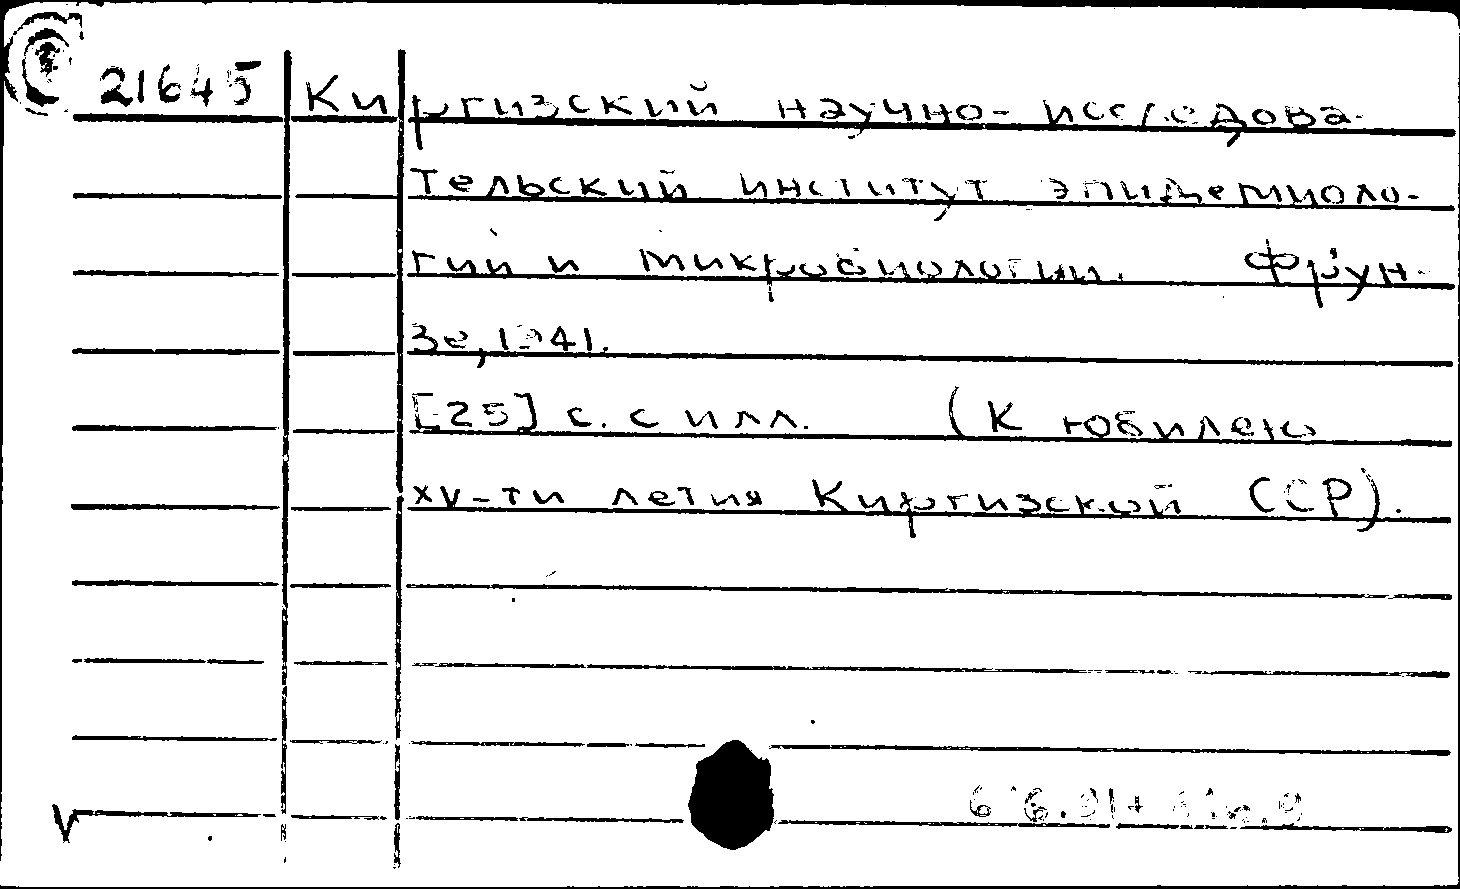 21645 Киргизский научно-исследова-
тельский институт эпидемиоло-
гий и микробиологии. Фрун-
зе, 1941.
[25] с. с илл. (К юбилею
XV-ти летия Киргизской ССР).